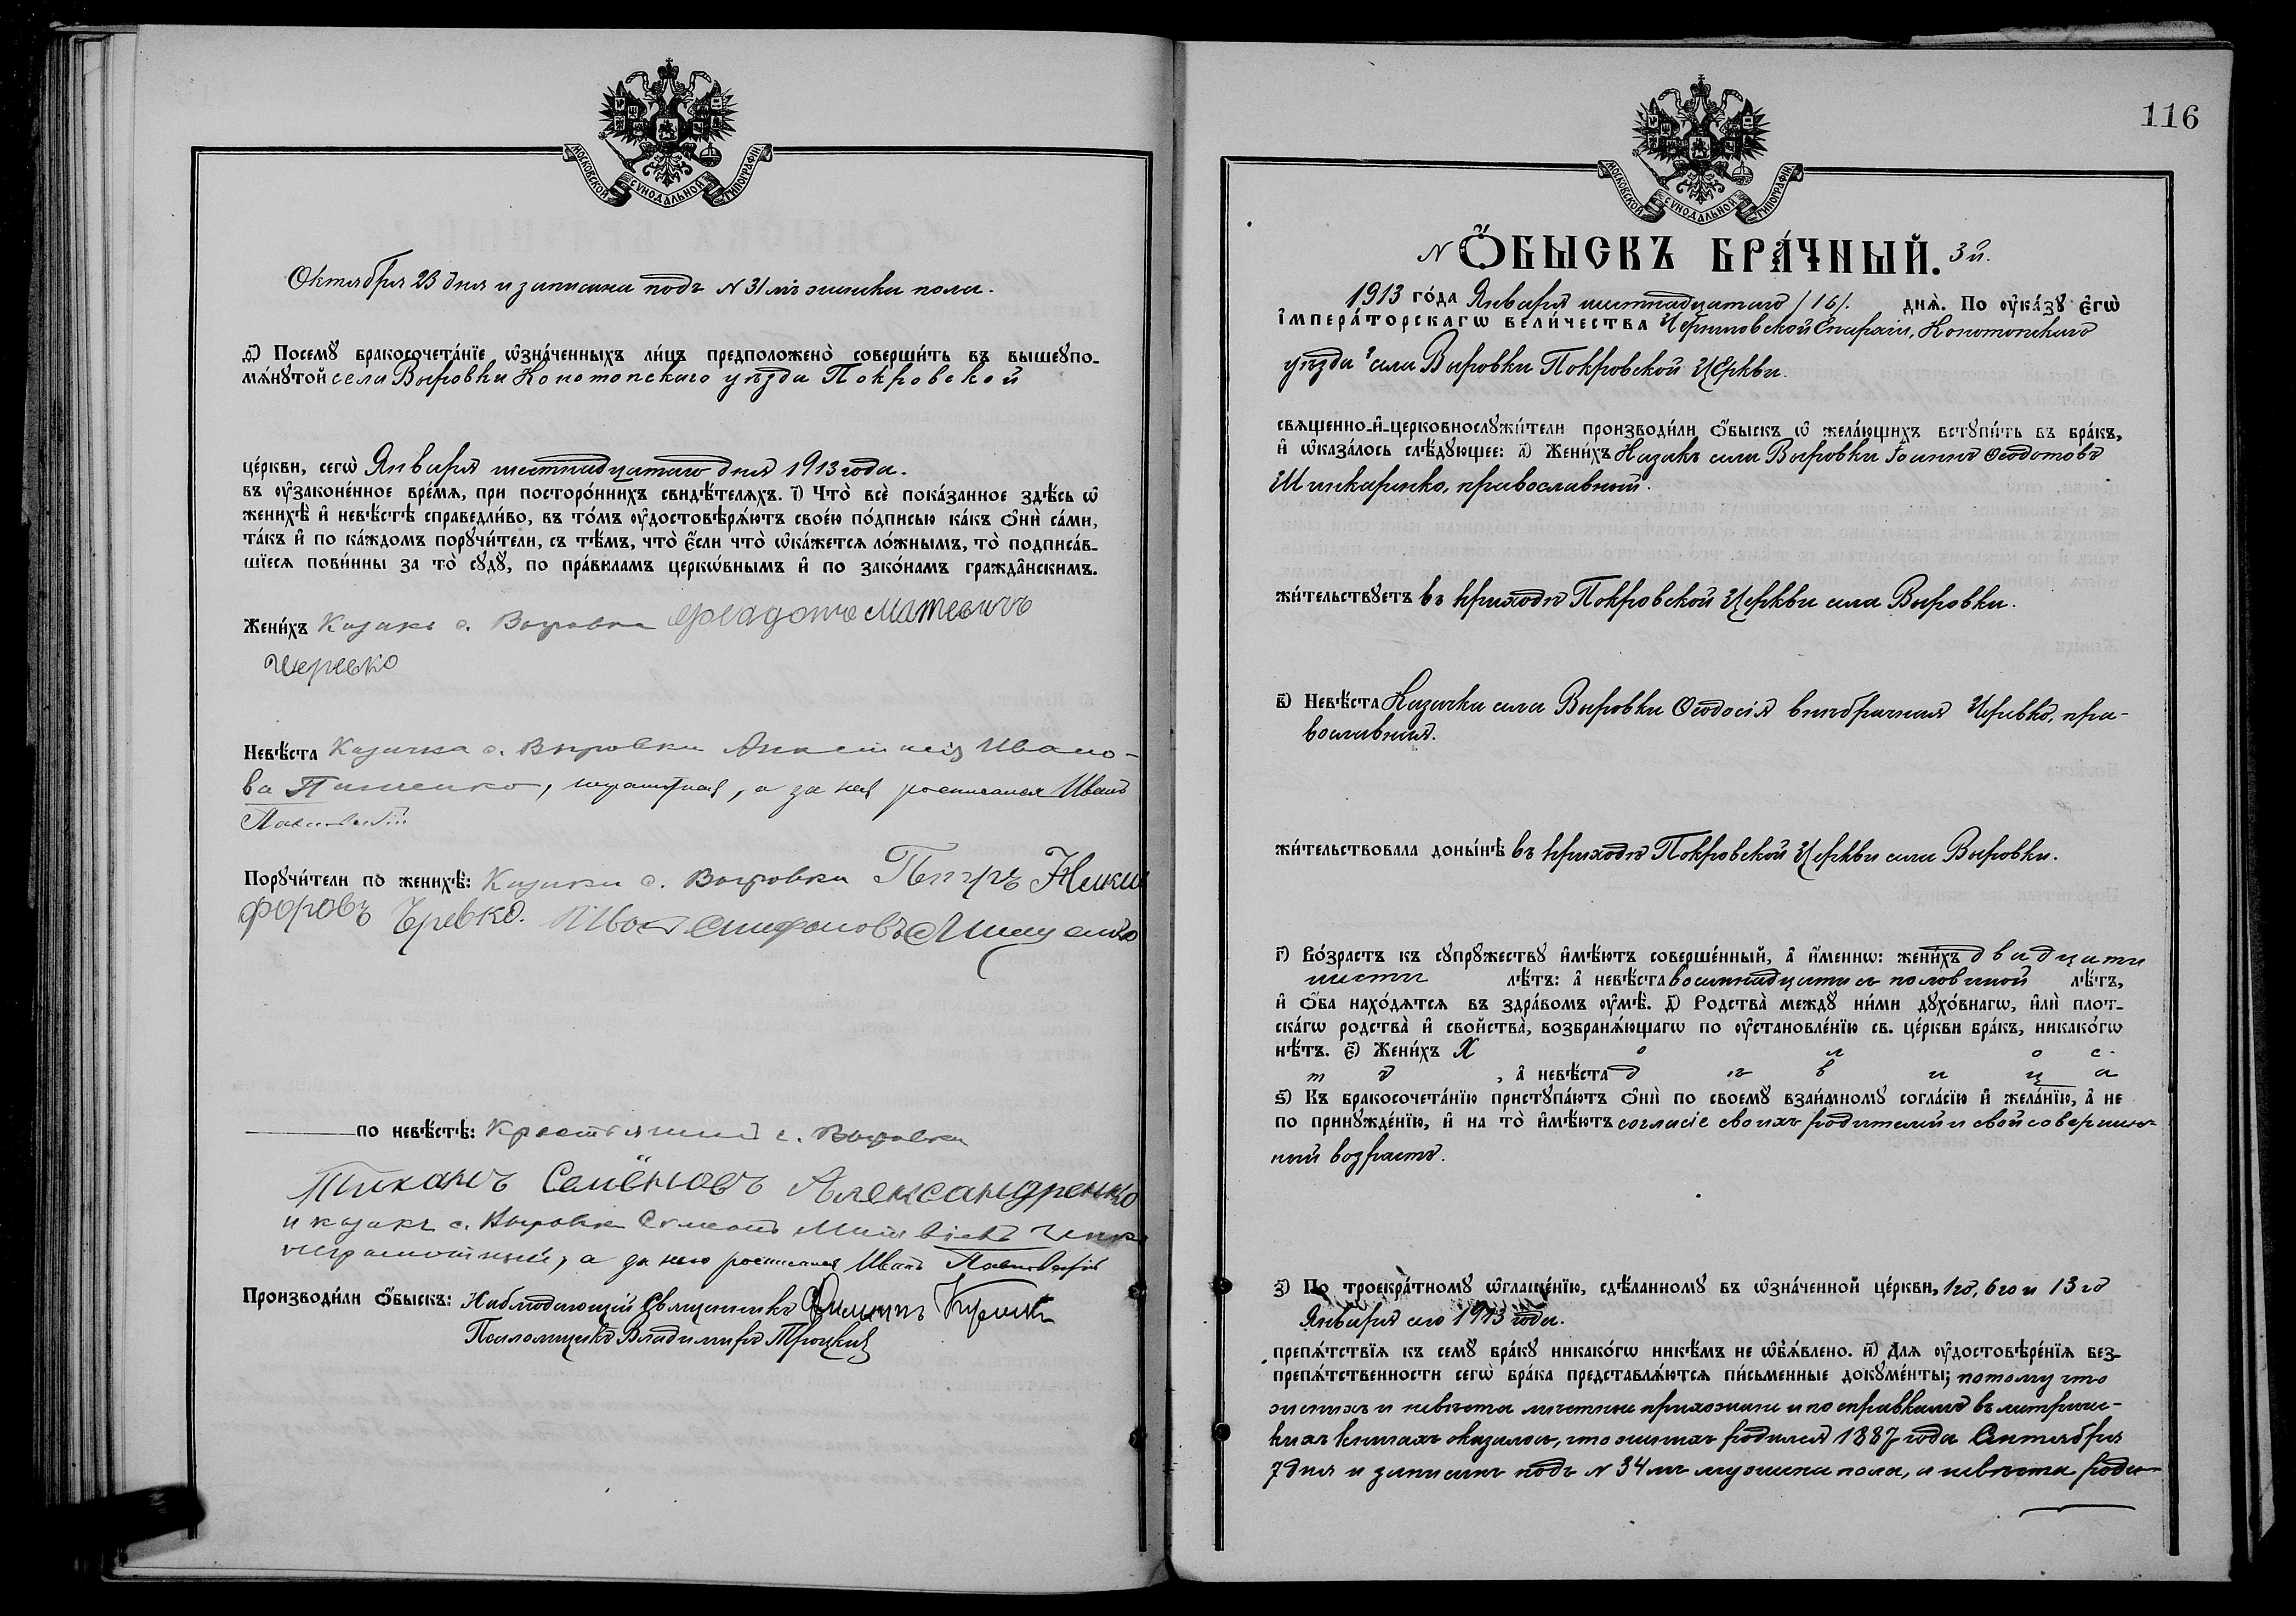 МОСКОВСКОЙ СѴНОДАЛЬНОЙ ТИПОГРАФІИ
Октября 23 дня и записана подъ N 31 мъ женска пола.
ѳ҃) Посемꙋ бракосочета́нїе ѡ҆зна́ченныхъ ли́цъ предположено̀ соверши́ть въ вышеꙋпо-
мѧ́нꙋтой села Выровки Конотопскаго уѣзда Покровской
це́ркви, сегѡ̀ Января шестнадцатаго дня 1913 года.
въ ᲂу҆законе́нное вре́мѧ, при посторо́ннихъ свидѣ́телѧхъ. і҃) Что̀ всѐ пока́занное здѣ́сь ѡ҆
женихѣ̀ и҆ невѣ́стѣ справедли́во, въ то́мъ ᲂу҆достовѣрѧ́ютъ свое́ю по́дписью ка́къ ѻ҆нѝ са́ми,
та́къ и҆ по ка́ждомъ порꙋчи́тели, съ тѣ́мъ, что̀ є҆́сли что̀ ѡ҆ка́жетсѧ ло́жнымъ, то̀ подписа́в-
шїесѧ пови́нны за то̀ сꙋдꙋ̀, по пра́виламъ церкѡ́внымъ и҆ по зако́намъ гражда́нскимъ.
Жени́хъ Казакъ с. Выровки Феадотъ Матвеичъ
Черевко
Невѣ́ста Казачка с. Выровки Анастасія Ивано-
ва Пащенко, неграмотная, а за нея росписался Иванъ
Порꙋчи́тели по женихѣ̀: Казаки с. Выровки Петръ Ники
форовъ Черевко. Иванъ
по невѣ́стѣ: Крестьянинъ с. Выровки
Тихонъ Семёновъ Александренко
и казакъ с. Выровки Симеонъ
неграмотный, а за него росписался Иванъ
Производи́ли ѻ҆́быскъ: Наблюдающій Священникъ Филиппъ
Псаломщикъ Владимиръ Троцкій
116
МОСКОВСКОЙ СѴНОДАЛЬНОЙ ТИПОГРАФІИ
N Ѻ҆́БЫСКЪ БРА́ЧНЫЙ. 3й.
1913 го́да Января шестнадцатаго /16/. днѧ̀. По ᲂу҆ка́зꙋ є҆гѡ̀
і҆мпера́торскагѡ вели́чества Черниговской Епархіи, Конотопскаго
уѣзда села Выровки Покровской Церкви.
свѧщенно-и҆-церковнослꙋжи́тели производи́ли ѻ҆́быскъ ѡ҆ жела́ющихъ встꙋпи́ть въ бра́къ,
и҆ ѡ҆каза́лось слѣ́дꙋющее: а҃) Жени́хъ Казакъ села Выровки Іоаннъ Ѳеодотовъ
Шинкаренко, православный.
жи́тельствꙋетъ въ приходѣ Покровской Церкви села Выровки.
в҃) Невѣ́ста Казачка села Выровки Ѳеодосія внѣбрачная Черевко, пра-
вославная.
жи́тельствовала доны́нѣ въ приходѣ Покровской Церкви села Выровки.
г҃) Во́зрастъ къ сꙋпрꙋ́жествꙋ и҆мѣ́ютъ соверше́нный, а҆ и҆́меннѡ: жени́хъ двадцати
шести лѣ́тъ: а҆ невѣ́ста восемнадцати съ половиной лѣ́тъ,
и҆ ѻ҆́ба нахо́дѧтсѧ въ здра́вомъ ᲂу҆мѣ̀. д҃) Родства̀ междꙋ̀ ни́ми дꙋхо́внагѡ, и҆лѝ плот-
ска́гѡ родства̀ и҆ свойства̀, возбранѧ́ющагѡ по ᲂу҆становле́нїю св. це́ркви бра́къ, никако́гѡ
нѣ́тъ. є҃) Жени́хъ Х о л о с-
т ъ, а҆ невѣ́ста д ѣ в и ц а
ѕ҃) Къ бракосочета́нїю пристꙋпа́ютъ ѻ҆нѝ по своемꙋ̀ взаи́мномꙋ согла́сїю и҆ жела́нїю, а҆ не
по принꙋжде́нїю, и҆ на то̀ и҆мѣ́ютъ согласіе своихъ родителей и свой совершен-
ный возрастъ.
з҃) По троекра́тномꙋ ѡ҆глаше́нїю, сдѣ́ланномꙋ въ ѡ҆зна́ченной це́ркви, 1го, 6го и 13го
Января сего 1913 года.
препѧ́тствїѧ къ семꙋ̀ бра́кꙋ никако́гѡ никѣ́мъ не ѡ҆б̾ѧ́влено. и҃) Длѧ ᲂу҆достовѣре́нїѧ без-
препѧ́тственности сегѡ̀ бра́ка представлѧ́ютсѧ пи́сьменные докꙋме́нты; потому что
женихъ и невѣста мѣстные прихожане и по справкамъ въ метриче-
кихъ книгахъ оказалось, что женихъ родился 1887 года Сентября
7 дня и записанъ подъ N 34 мъ мужска пола, а невѣста роди-